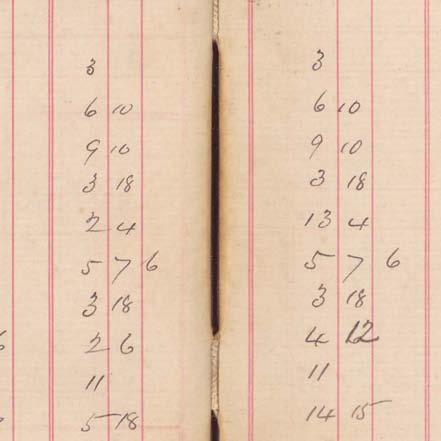 3
6 10
9 10
3 18
2 4
5 7 6
3 18
2 6
11
5 18
3
6 10
9 10
3 18
13 4
5 7 6
3 18
4 12
11
14 15